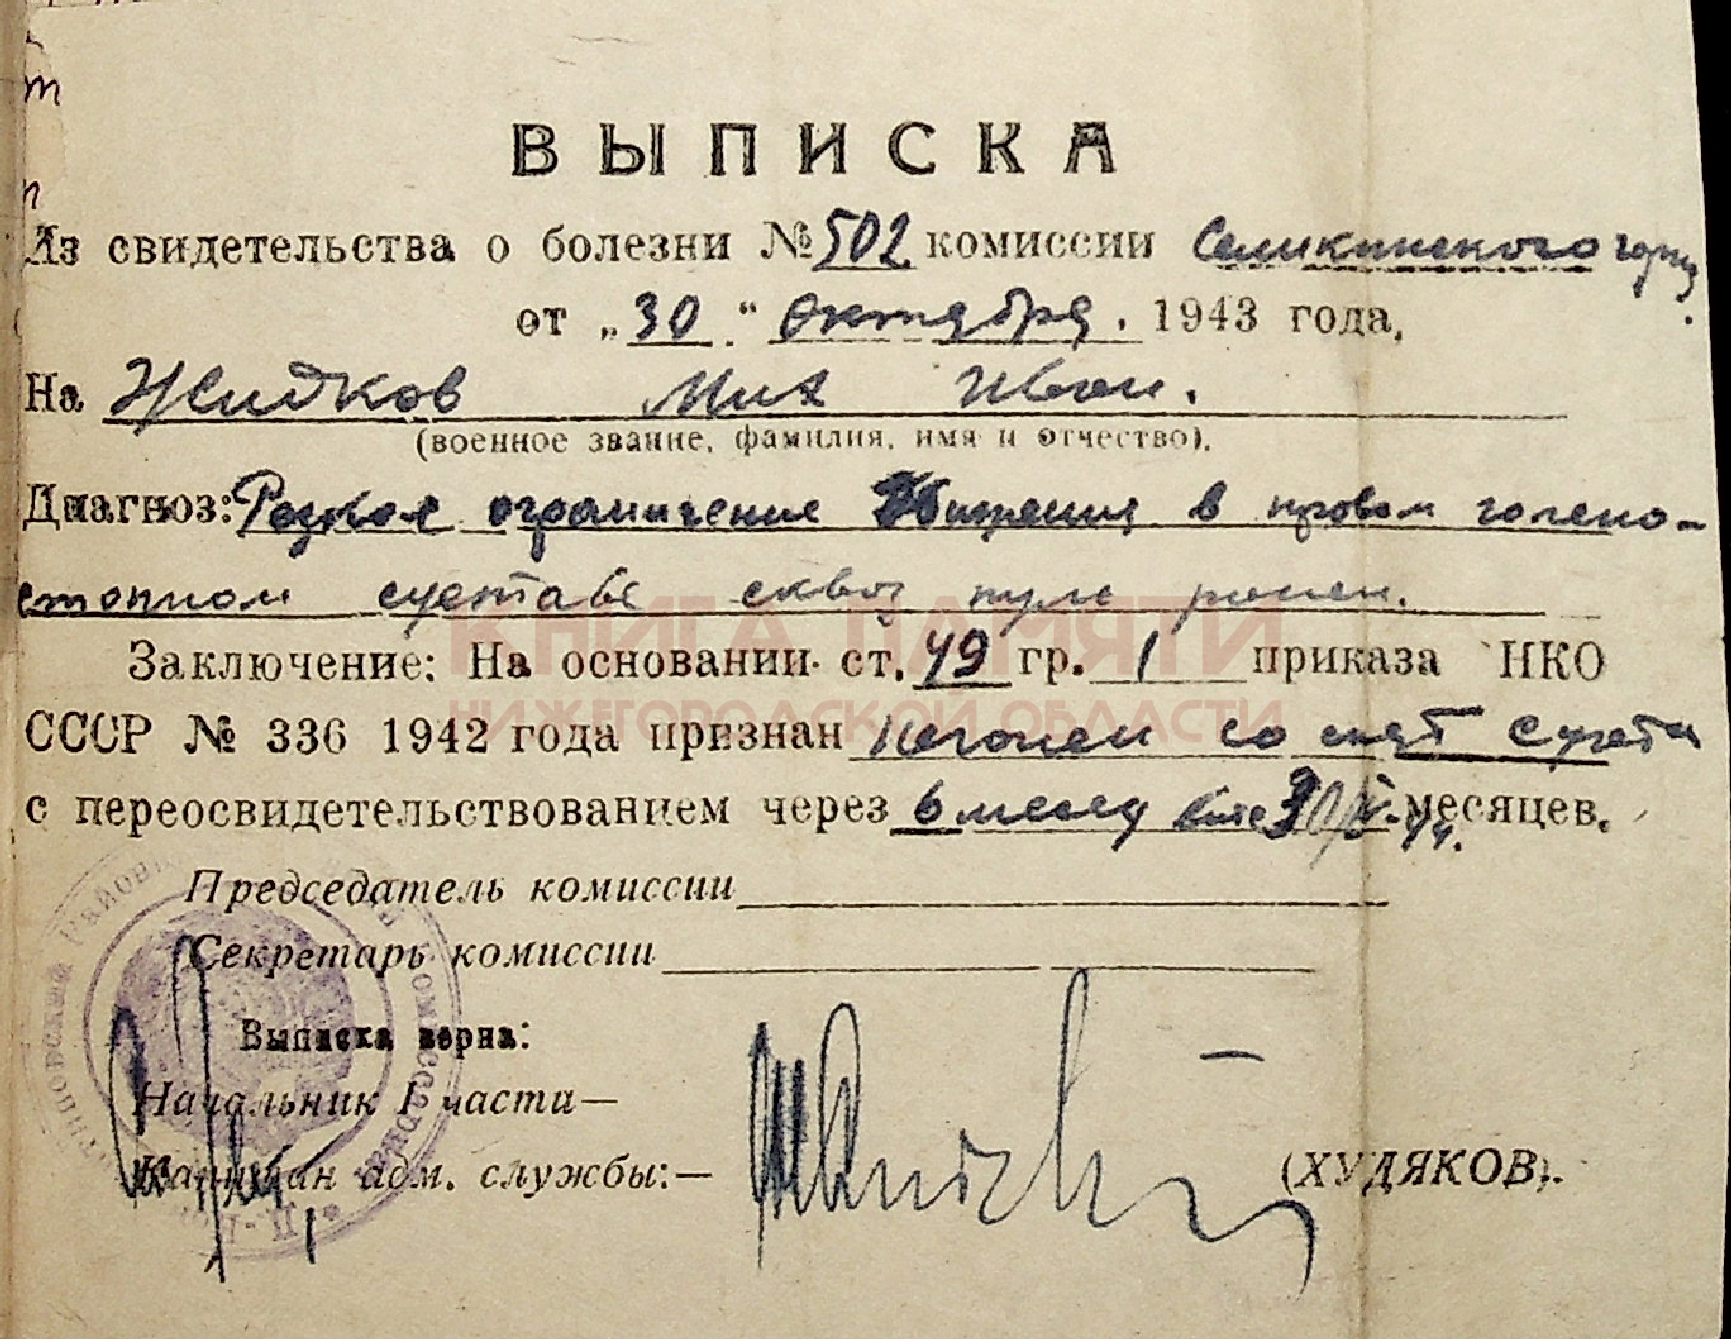 ВЫПИСКА
Из свидетельства о болезни № 502 комиссии
от „30" октября. 1943 года,
На Жидков Мих Иван.
(военное звание, фамилия, имя и отчество).
Диагноз: Резкое ограничение движения в правом голено-
стопном суставе сквоз пуле ранен.
Заключение: На основании ст. 49 гр. 1 приказа НКО
СССР № 336 1942 года признан негоден со снят с учета
с переосвидетельствованием через 6 месяц месяцев.
Председатель комиссии
Секретарь комиссии
Выписка верна:
Начальник I части—
Капитан адм. службы:— (ХУДЯКОВ).
КНИГА ПАМЯТИ
НИЖЕГОРОДСКОЙ ОБЛАСТИ